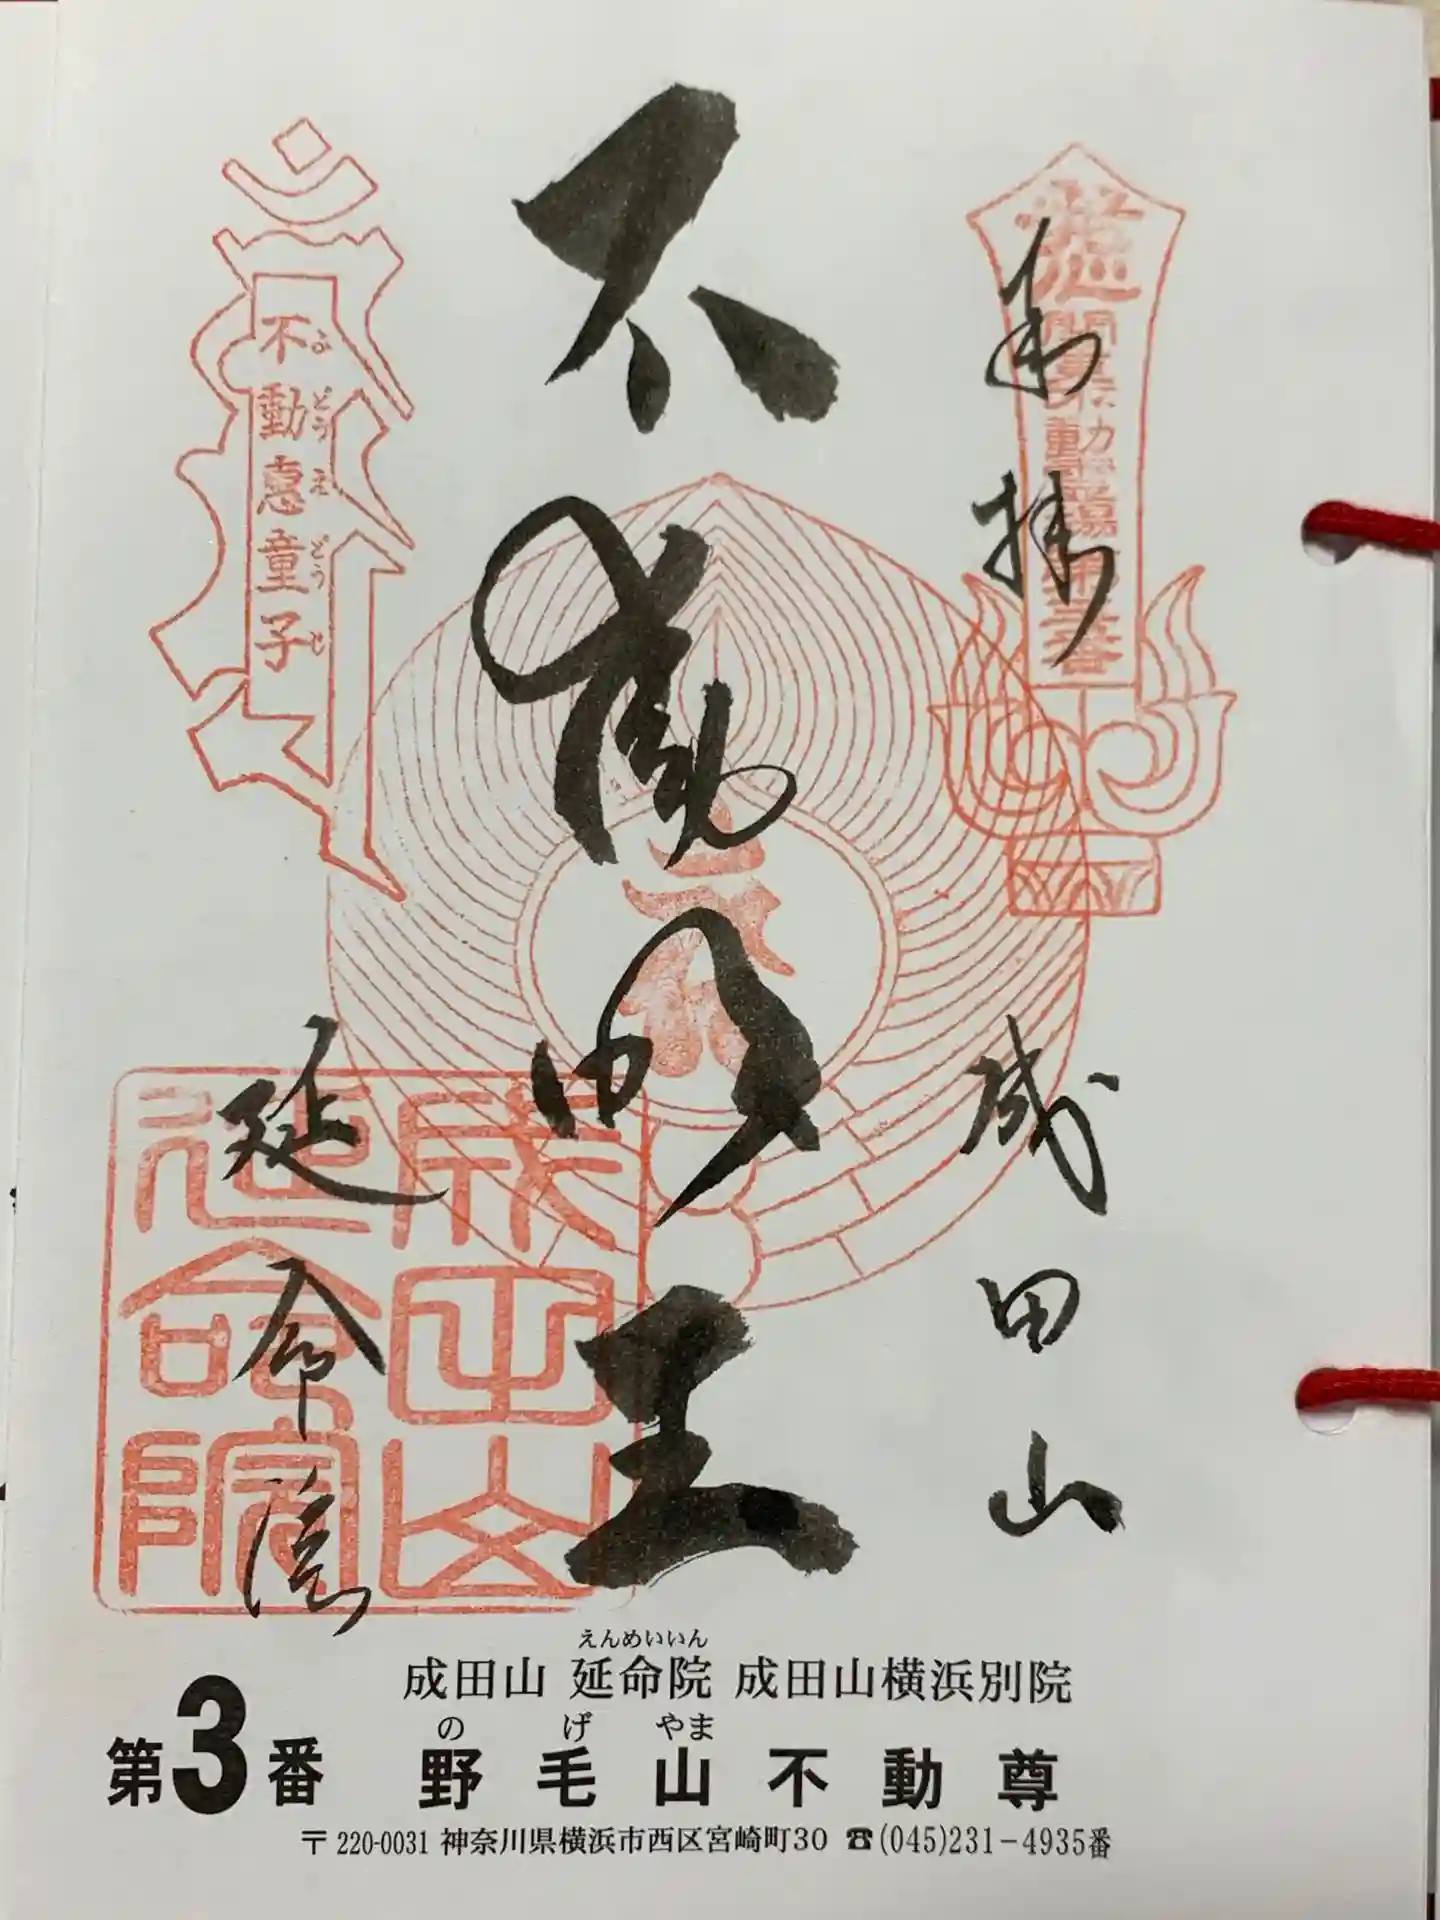 奉拝
成田山
不動明王
不動恵童子
ふどうえどうじ
延命院
成田山
延命院
えんめいいん
成田山 延命院 成田山横浜別院
第3番
のげやま
野毛山不動尊
〒220-0031 神奈川県横浜市西区宮崎町30 ☎(045)231-4935番